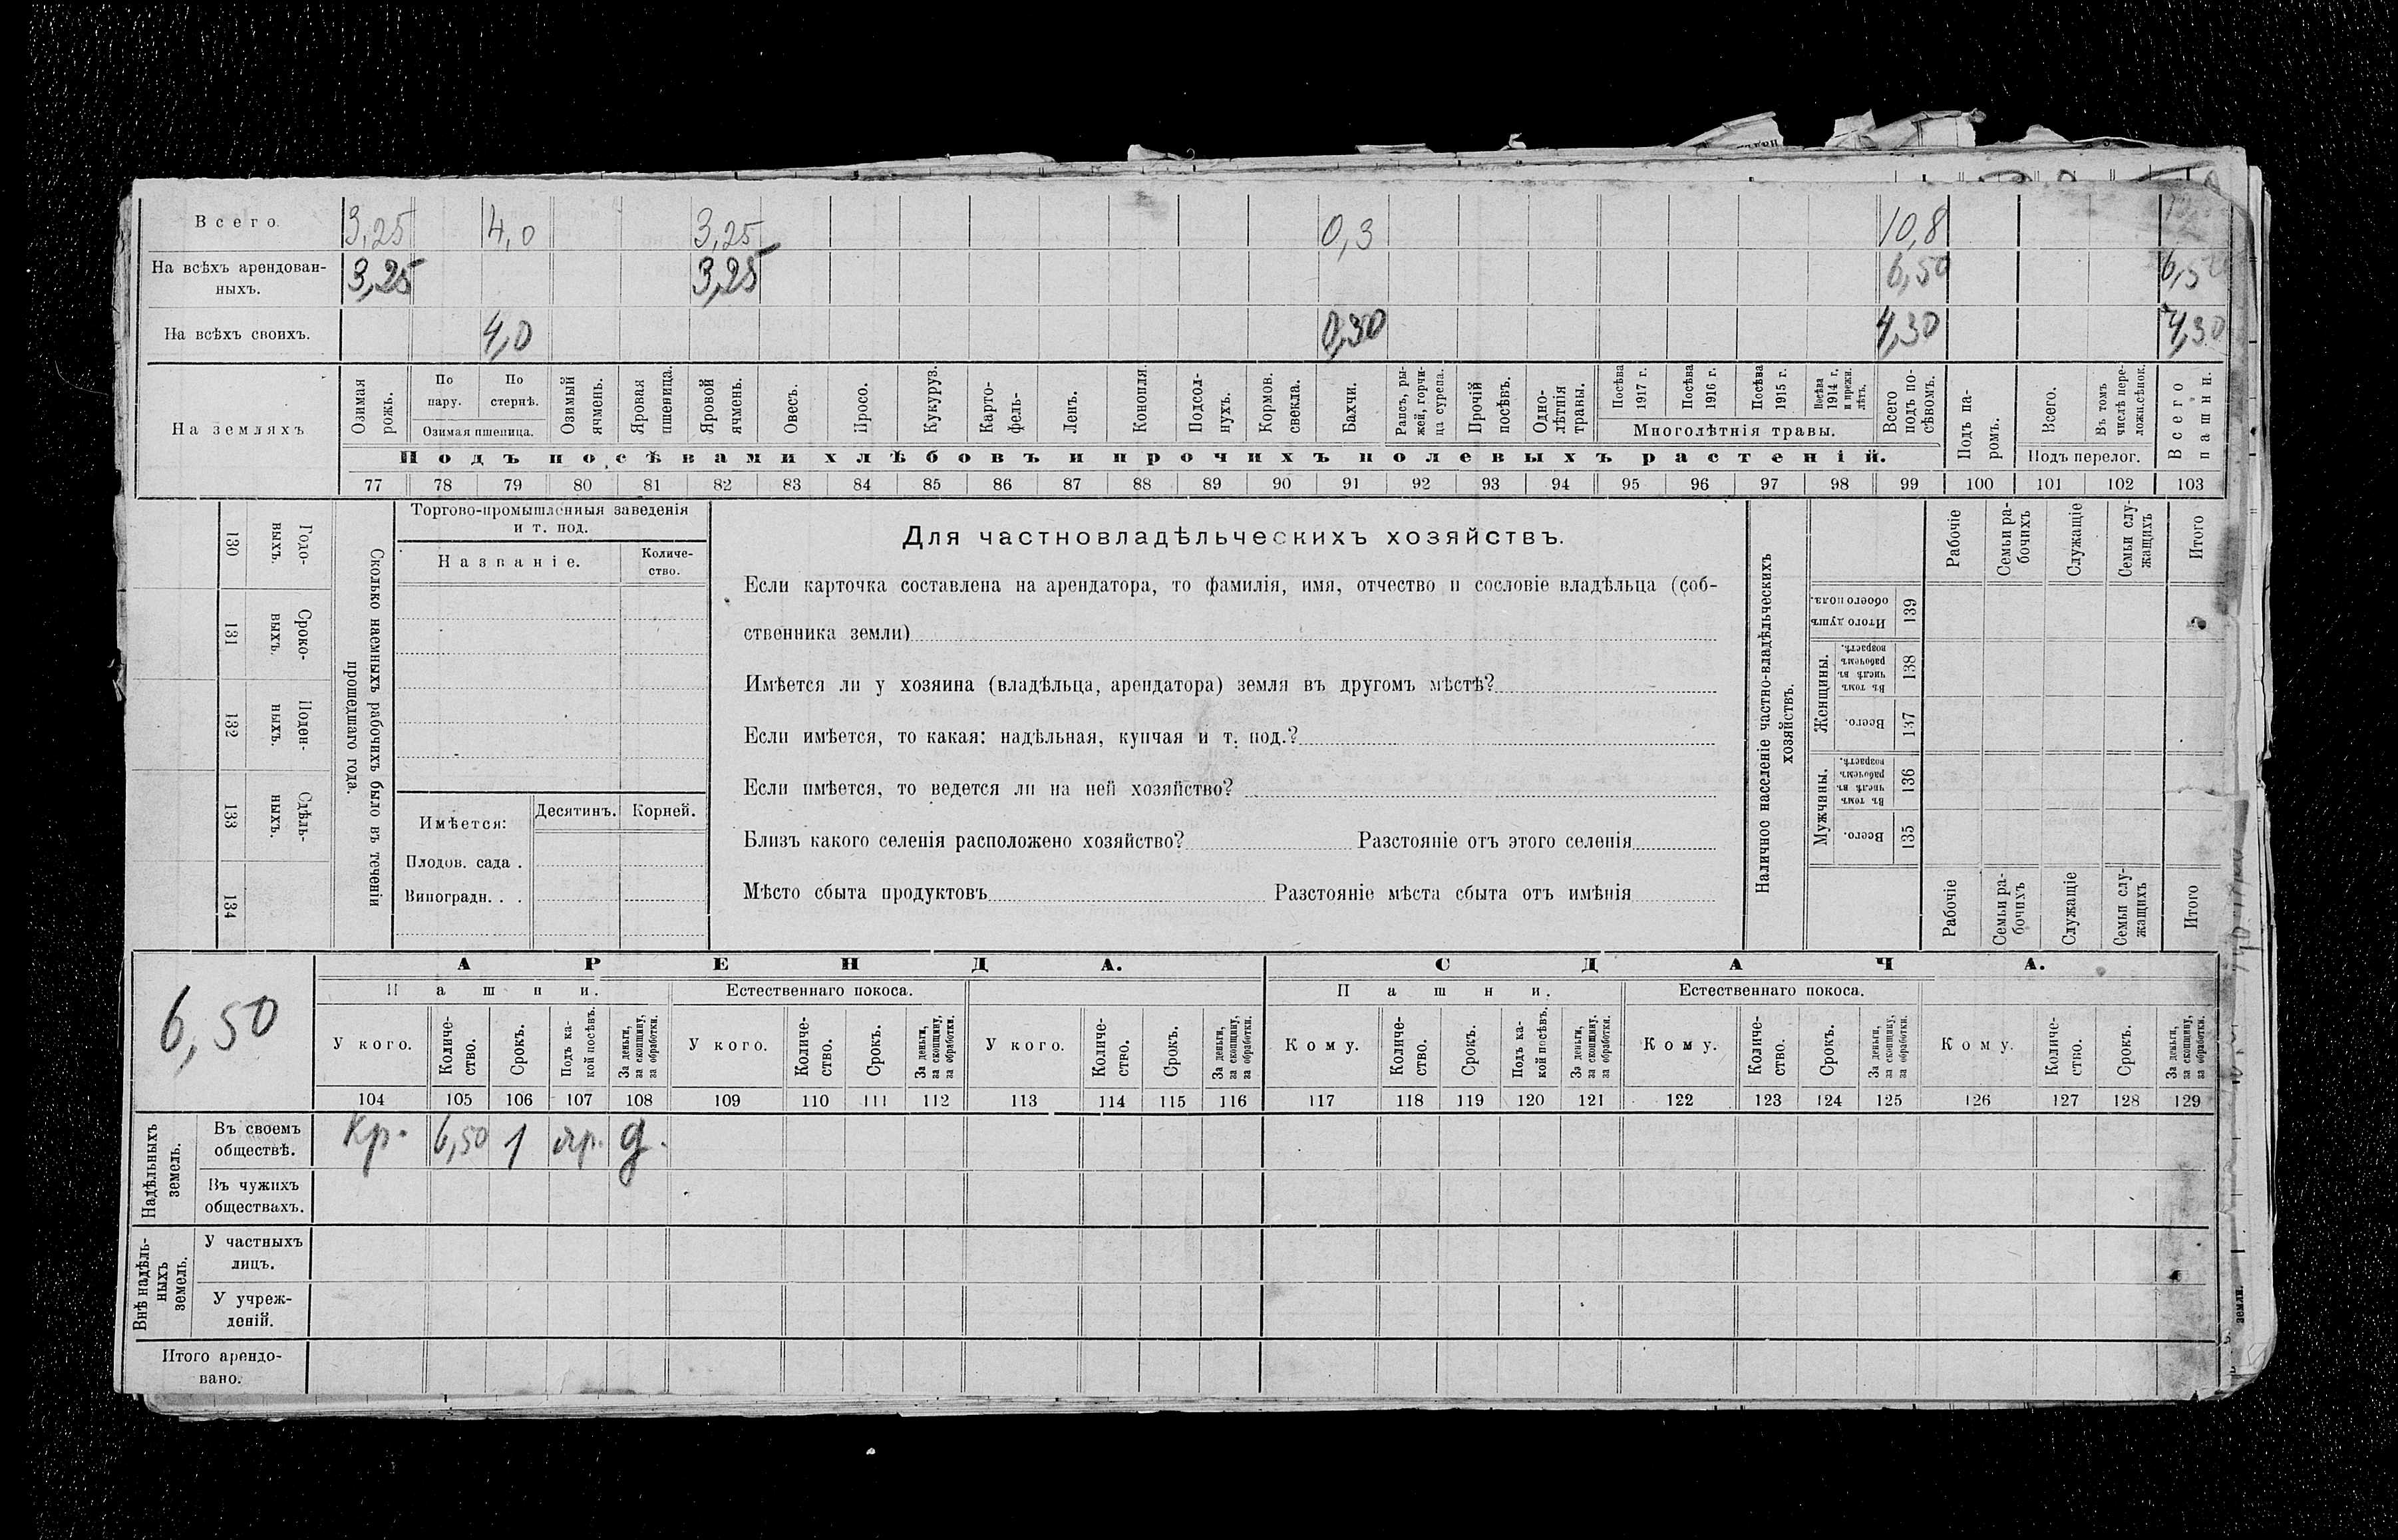 Всего. 3,25 4,0 3,25 0,3 10,8
На всѣхъ арендован-
ныхъ. 3,25 3,25 6,50 6,5
На всѣхъ своихъ. 4,0 0,30 4,30 4,30
На земляхъ
Озимая рожь.
По пару.
По стернѣ.
Озимая пшеница.
Озимый ячмень.
Яровая пшеница.
Яровой ячмень.
Овесъ.
Просо.
Кукуруз.
Карто-
фель-
Ленъ.
Конопля.
Подсол-
нухъ.
Кормов. свекла.
Бахчи.
Рапсъ, ры-
жей, горчи-
ца сурепа.
Прочій посѣвъ.
Одно-
лѣтнія травы.
Посѣва 1917 г.
Посѣва 1916 г.
Посѣва 1915 г.
Посѣва 1914 г. и прежн. лѣтъ.
Многолѣтнія травы.
Всего подъ по-
сѣвомъ.
Подъ па-
ромъ.
Всего.
Въ томъ числѣ пере-
ложн.сѣнок.
Подъ перелог.
Всего пашни.
Подъ посѣвами хлѣбовъ и прочихъ полевыхъ растеній.
77 78 79 80 81 82 83 84 85 86 87 88 89 90 91 92 93 94 95 96 97 98 99 100 101 102 103
130 Годо-
выхъ.
131 Сроко-
выхъ.
132 Поден-
ныхъ.
133 Сдѣль-
ныхъ.
134
Сколько наемныхъ рабочихъ было въ теченіи
прошедшаго года.
Торгово-промышленныя заведенія
и т. под.
Названіе.
Количе-
ство.
Имѣется: Десятинъ. Корней.
Плодов. сада .
Виноградн. . .
Для частновладѣльческихъ хозяйствъ.
Если карточка составлена на арендатора, то фамилія, имя, отчество и сословіе владѣльца (соб-
ственника земли)
Имѣется ли у хозяина (владѣльца, арендатора) земля въ другомъ мѣстѣ?
Если имѣется, то какая: надѣльная, купчая и т. под.?
Если имѣется, то ведется ли на ней хозяйство?
Близъ какого селенія расположено хозяйство? Разстояніе отъ этого селенія
Мѣсто сбыта продуктовъ Разстояніе мѣста сбыта отъ имѣнія
Наличное населеніе частно-владѣльческихъ
хозяйствъ.
Рабочіе
Семьи ра-
бочихъ
Служащіе
Семьи слу-
жащихъ
Итого
Итого душъ обоего пола. 139
Женщины.
Въ томъ числѣ въ рабочемъ возрастѣ. 138
Всего. 137
Мужчины.
Въ томъ числѣ въ рабочемъ возрастѣ. 136
Всего. 135
Рабочіе
Семьи ра-
бочихъ
Служащіе
Семьи слу-
жащихъ
Итого
6,50
АРЕНДА. СДАЧА.
Пашни. Естественнаго покоса. Пашни. Естественнаго покоса.
У кого.
Количе-
ство.
Срокъ.
Подъ ка-
кой посѣвъ.
За деньги,
за скопщину,
за обработки.
У кого.
Количе-
ство.
Срокъ.
За деньги,
за скопщину,
за обработки.
У кого.
Количе-
ство.
Срокъ.
За деньги,
за скопщину,
за обработки.
Кому.
Количе-
ство.
Срокъ.
Подъ ка-
кой посѣвъ.
За деньги,
за скопщину,
за обработки.
Кому.
Количе-
ство.
Срокъ.
За деньги,
за скопщину,
за обработки.
Кому.
Количе-
ство.
Срокъ.
За деньги,
за скопщину,
за обработки.
104 105 106 107 108 109 110 111 112 113 114 115 116 117 118 119 120 121 122 123 124 125 126 127 128 129
Надѣльныхъ
земель.
Въ своемъ
обществѣ. Кр. 6,50 1 д.
Въ чужихъ
обществахъ.
Внѣ надѣль-
ныхъ
земель.
У частныхъ
лицъ.
У учреж-
деній.
Итого арендо-
вано.
земли.